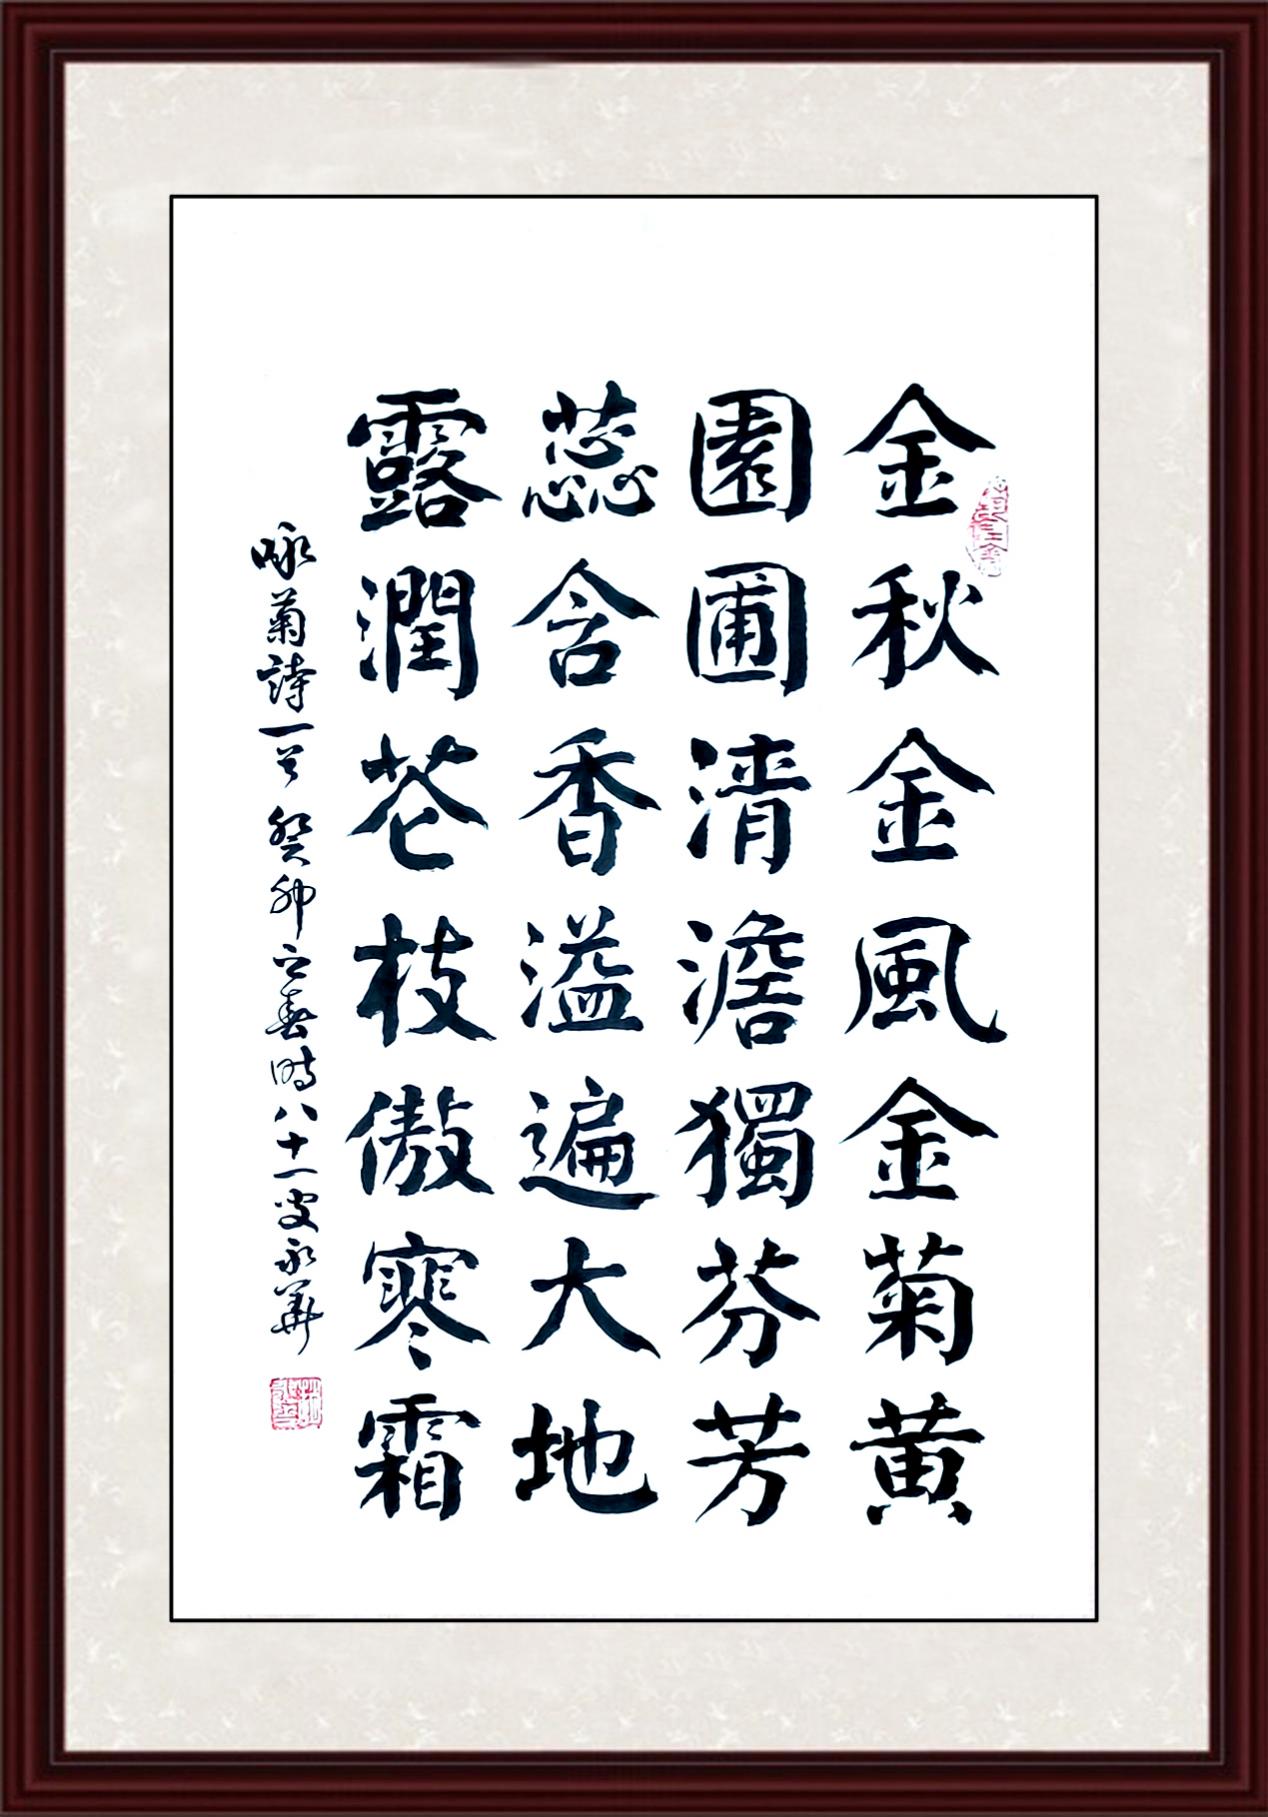 金秋金風金菊黄
園圃清澹獨芬芳
蕊含香溢遍大地
露潤花枝傲寒霜
咏菊詩一首癸卯之春時八十一叟永華